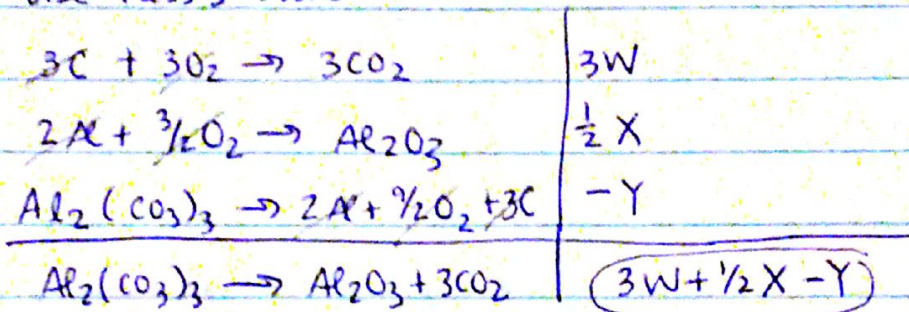 3C + 3O₂ → 3CO₂ | 3W
2Al + 3/2O₂ → Al₂O₃ | 1/2 X
Al₂(CO₃)₃ → 2Al + 9/2O₂ + 3C | -Y
Al₂(CO₃)₃ → Al₂O₃ + 3CO₂ | 3W + 1/2 X - Y